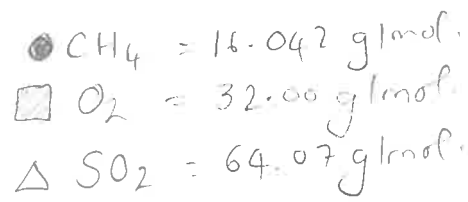 CH4 = 16.042 g/mol.
O2 = 32.00 g/mol.
SO2 = 64.07 g/mol.